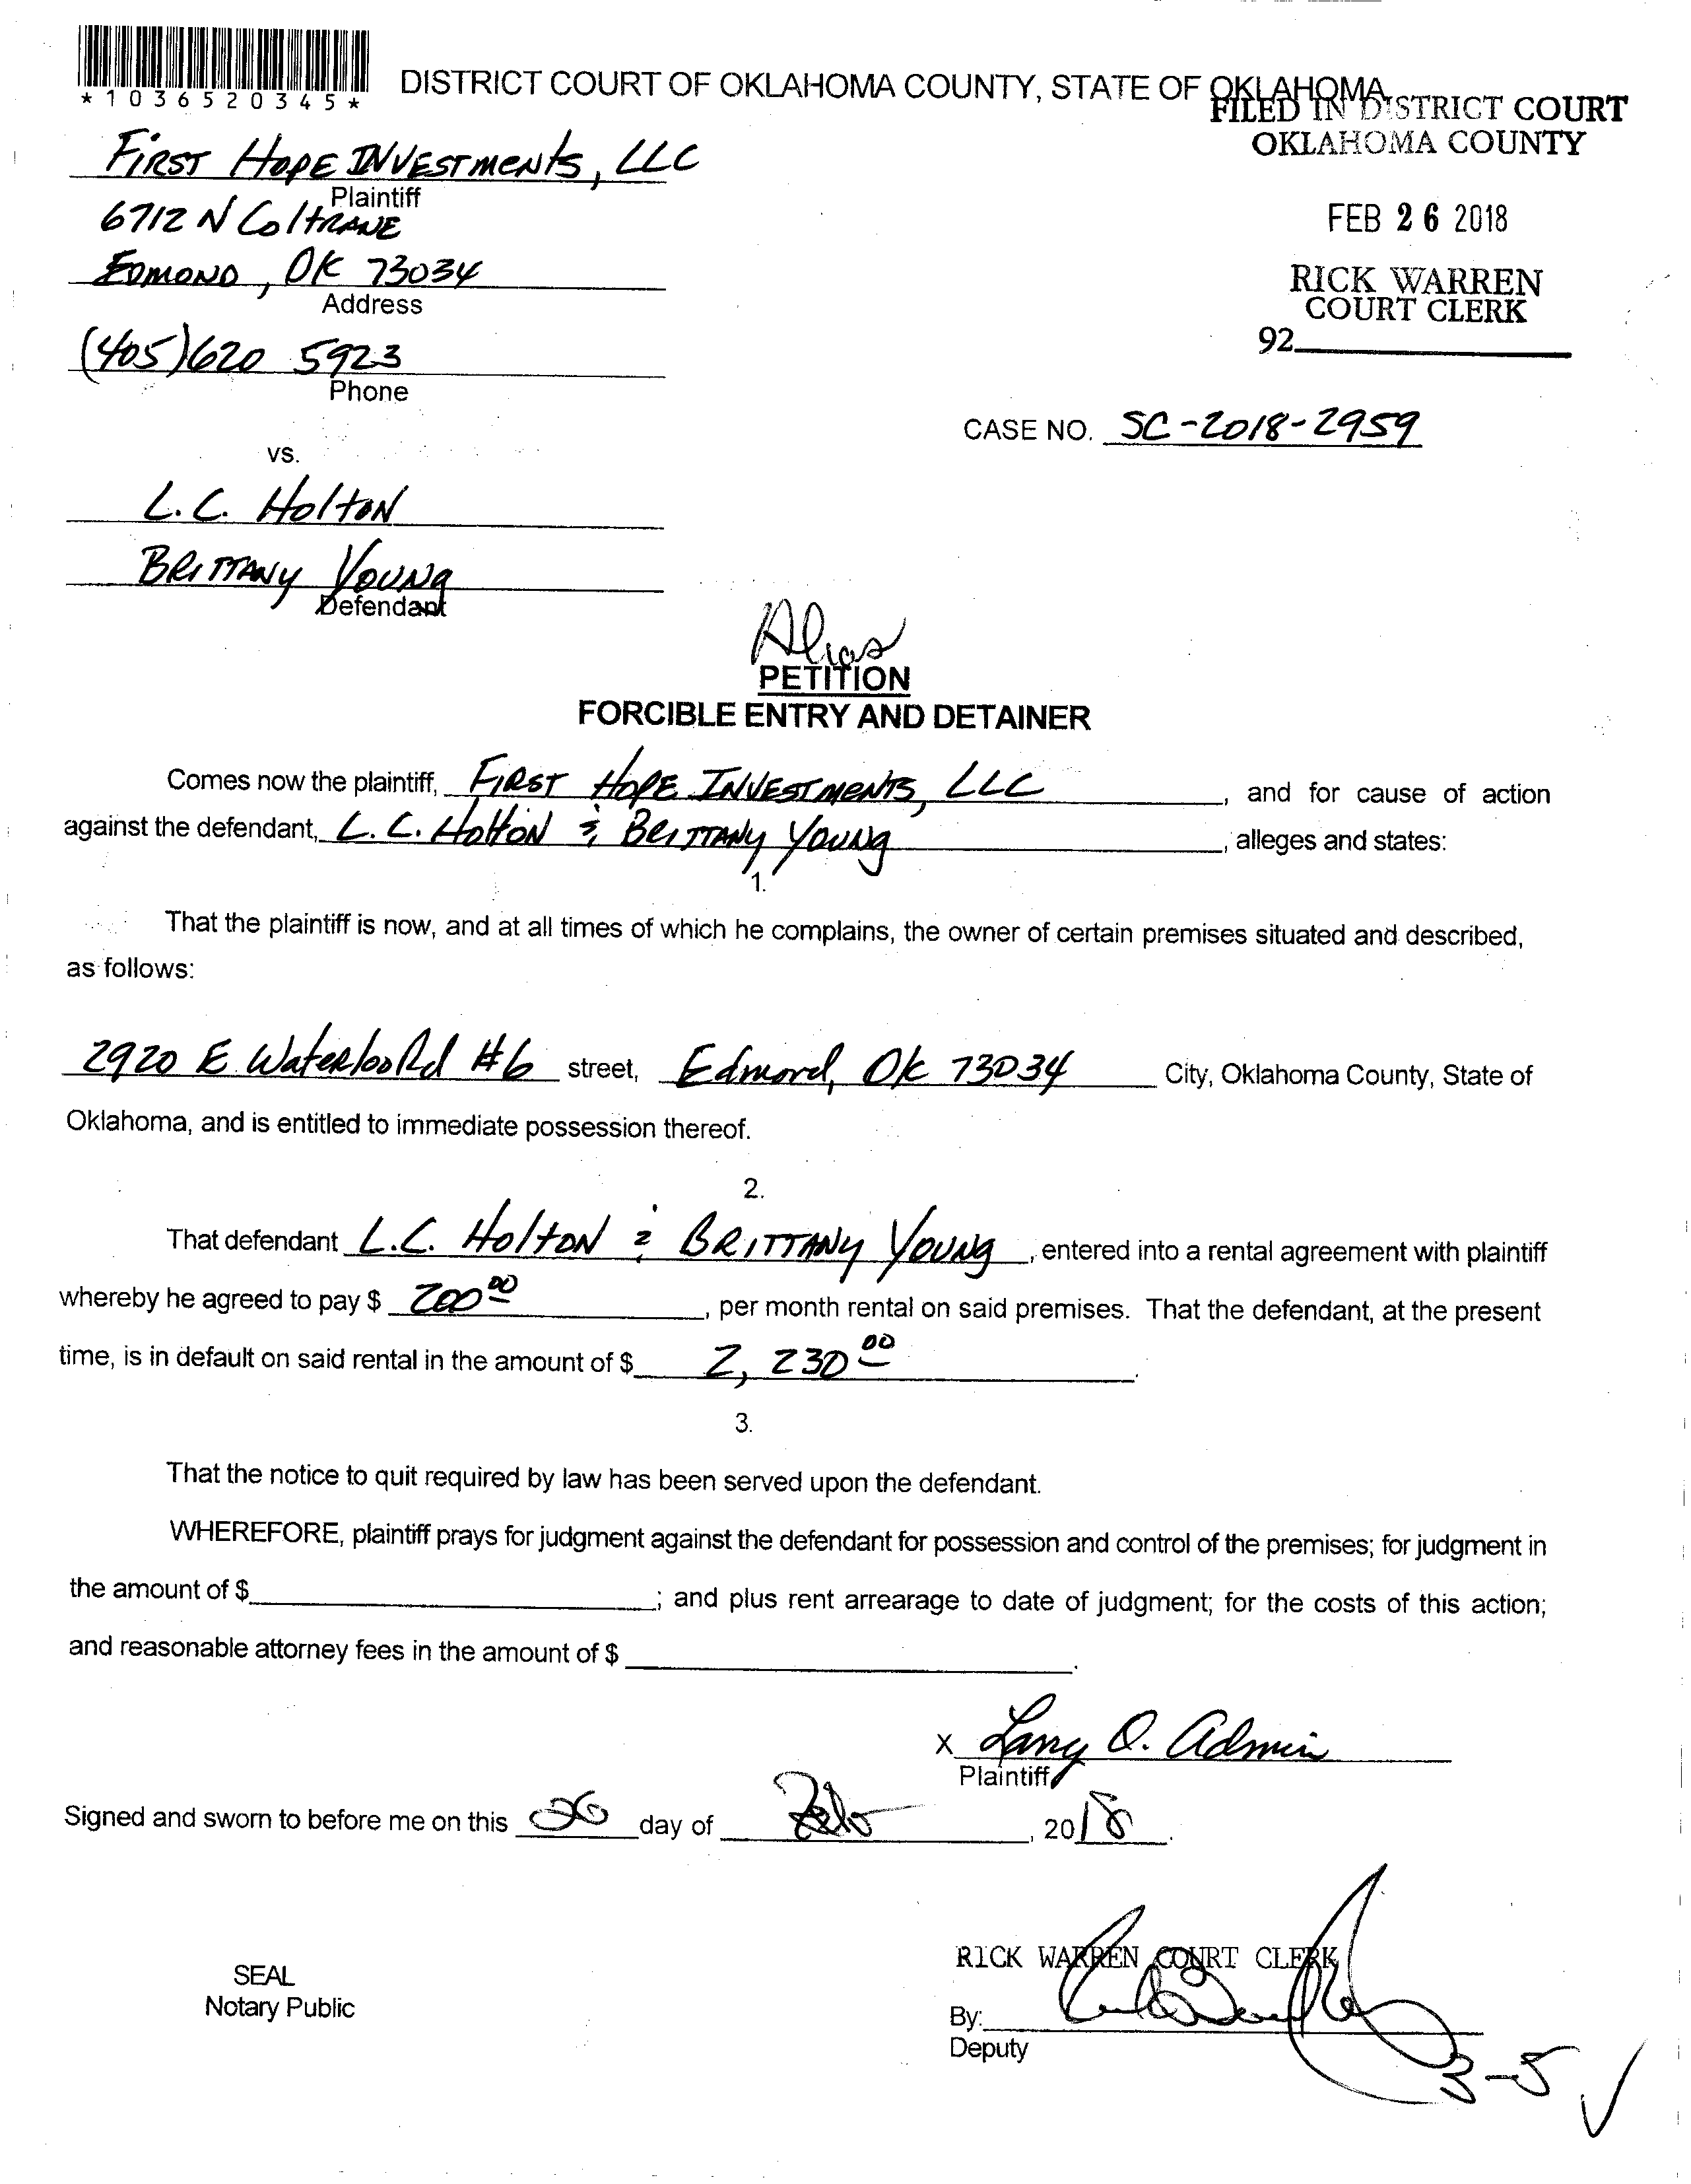 *1036520345*
DISTRICT COURT OF OKLAHOMA COUNTY, STATE OF OKLAHOMA
FILED IN DISTRICT COURT
OKLAHOMA COUNTY
FEB 26 2018
RICK WARREN
COURT CLERK
92
FIRST HOPE INVESTMENTS, LLC
Plaintiff
6712 N COLTRANE
EDMOND, OK 73034
Address
(405) 620 5923
Phone
CASE NO. SC-2018-2959
vs.
L.C. HOLTON
BRITTANY YOUNG
Defendant
Alias
PETITION
FORCIBLE ENTRY AND DETAINER
Comes now the plaintiff, FIRST HOPE INVESTMENTS, LLC, and for cause of action
against the defendant, L.C. HOLTON & BRITTANY YOUNG, alleges and states:
1.
That the plaintiff is now, and at all times of which he complains, the owner of certain premises situated and described,
as follows:
2920 E Waterloo Rd #6 street, Edmond, OK 73034 City, Oklahoma County, State of
Oklahoma, and is entitled to immediate possession thereof.
2.
That defendant L.C. HOLTON & BRITTANY YOUNG, entered into a rental agreement with plaintiff
whereby he agreed to pay $ 700.00, per month rental on said premises. That the defendant, at the present
time, is in default on said rental in the amount of $ 2,230.00.
3.
That the notice to quit required by law has been served upon the defendant.
WHEREFORE, plaintiff prays for judgment against the defendant for possession and control of the premises; for judgment in
the amount of $ ; and plus rent arrearage to date of judgment; for the costs of this action;
and reasonable attorney fees in the amount of $ .
X Larry O. Admin
Plaintiff
Signed and sworn to before me on this 26 day of Feb, 2018.
RICK WARREN COURT CLERK
SEAL
Notary Public
By:
Deputy
3-5 ✓